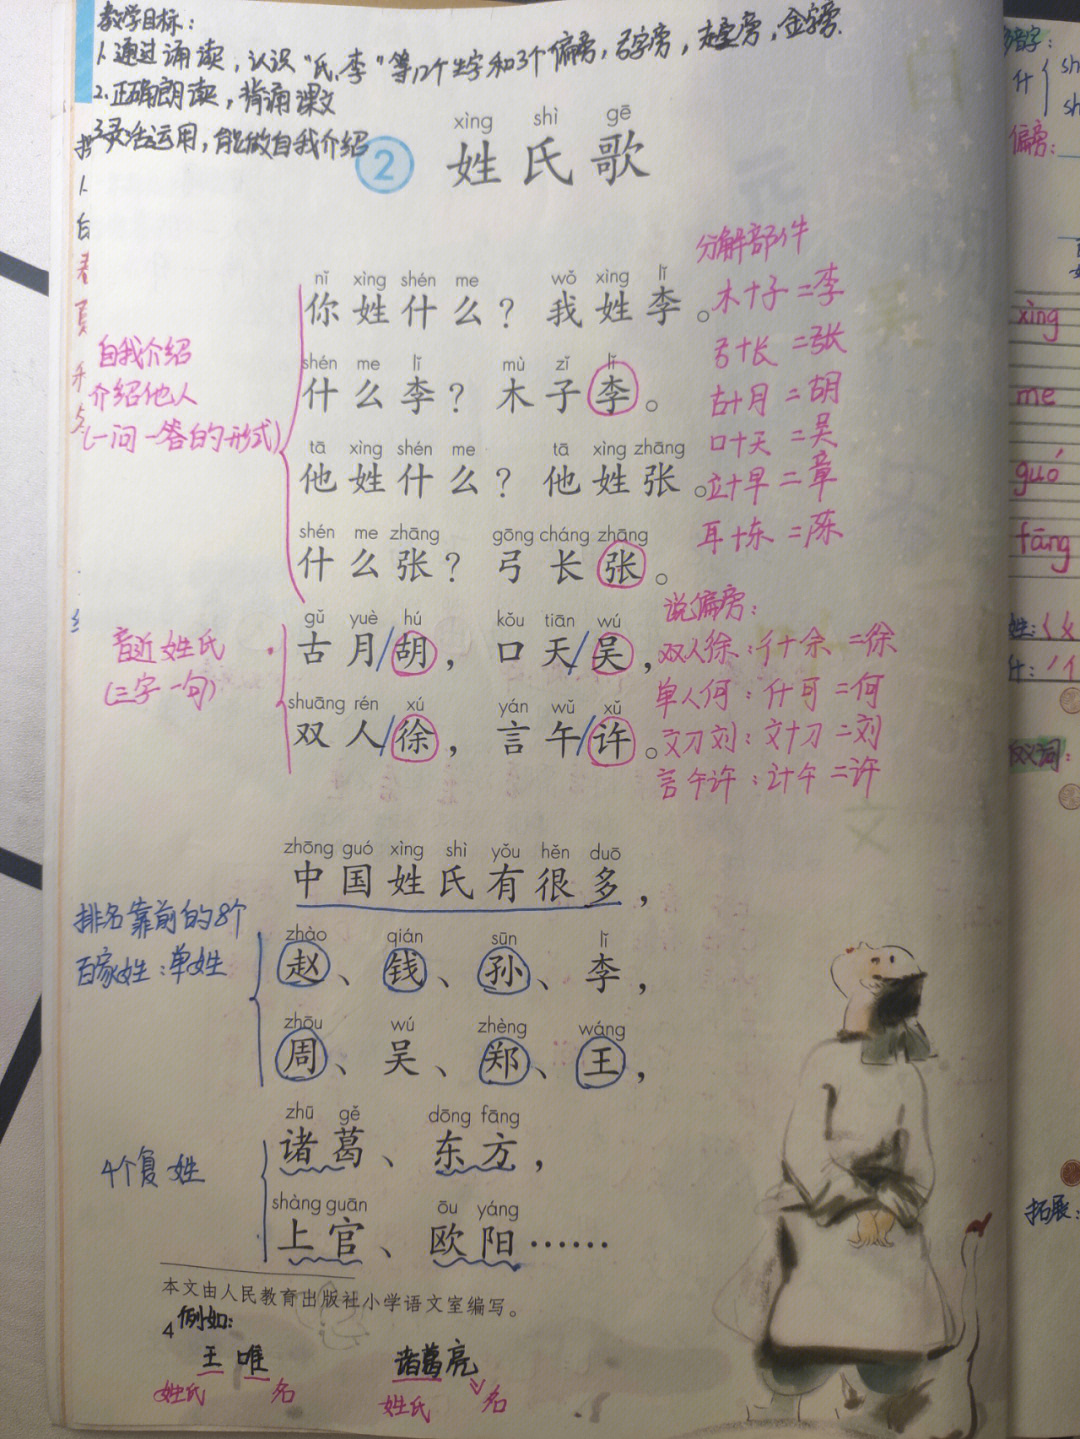 教学目标：
1.通过诵读，认识“氏、李”等12个生字和3个偏旁，弓字旁，走字旁，金字旁.
2.正确朗读，背诵课文
3.灵活运用，能做自我介绍
xìng shì gē
2 姓氏歌
nǐ xìng shén me wǒ xìng lǐ
你姓什么？我姓李。
shén me lǐ mù zǐ lǐ
什么李？木子李。
tā xìng shén me tā xìng zhāng
他姓什么？他姓张。
shén me zhāng gōng cháng zhāng
什么张？弓长张。
gǔ yuè hú kǒu tiān wú
古月/胡，口天/吴，
shuāng rén xú yán wǔ xǔ
双人/徐，言午/许。
自我介绍
介绍他人
(一问一答的形式)
音近姓氏
(三字一句)
分解部件
木+子=李
弓+长=张
古+月=胡
口+天=吴
立+早=章
耳+东=陈
说偏旁：
双人徐：彳+余=徐
单人何：亻+可=何
文刀刘：文+刂=刘
言午许：讠+午=许
zhōng guó xìng shì yǒu hěn duō
中国姓氏有很多，
zhào qián sūn lǐ
赵、钱、孙、李，
zhōu wú zhèng wáng
周、吴、郑、王，
zhū gě dōng fāng
诸葛、东方，
shàng guān ōu yáng
上官、欧阳……
排名靠前的8个
百家姓：单姓
4个复姓
本文由人民教育出版社小学语文室编写。
4
例如：
王唯 诸葛亮
姓氏 名 姓氏 名
多音字：
什
sh
sh
偏旁：
xìng
me
guó
fāng
姓：
什：
反义词：
拓展：